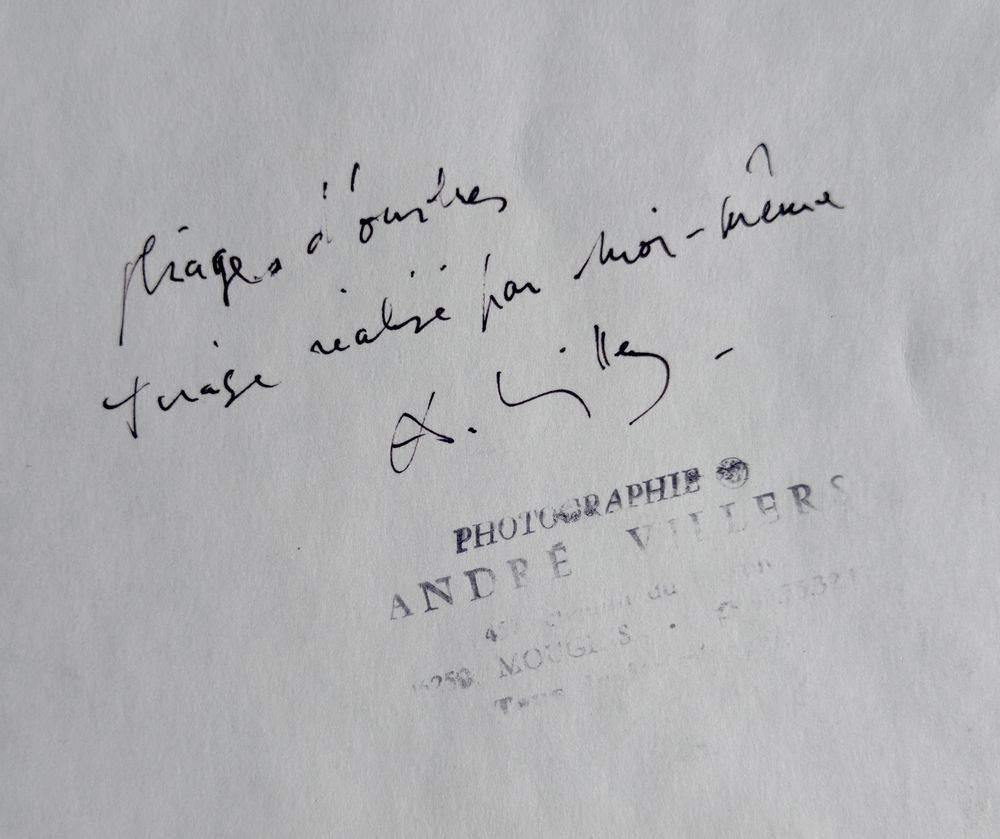 pliages d'ombres
tirage réalisé par moi-même
A. Villers -
PHOTOGRAPHIE
ANDRÉ VILLERS
du
MOUGINS •